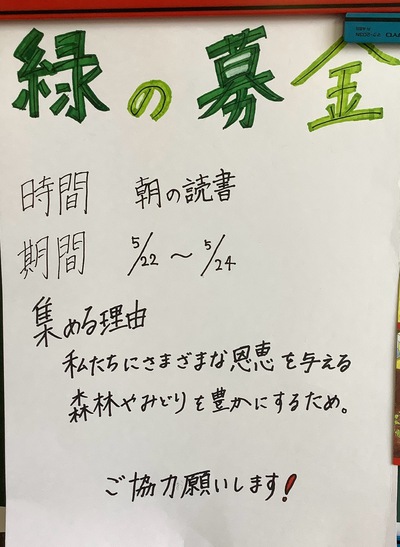 緑の募金
時間 朝の読書
期間 5/22～5/24
集める理由
私たちにさまざまな恩恵を与える
森林やみどりを豊かにするため。
ご協力願いします!